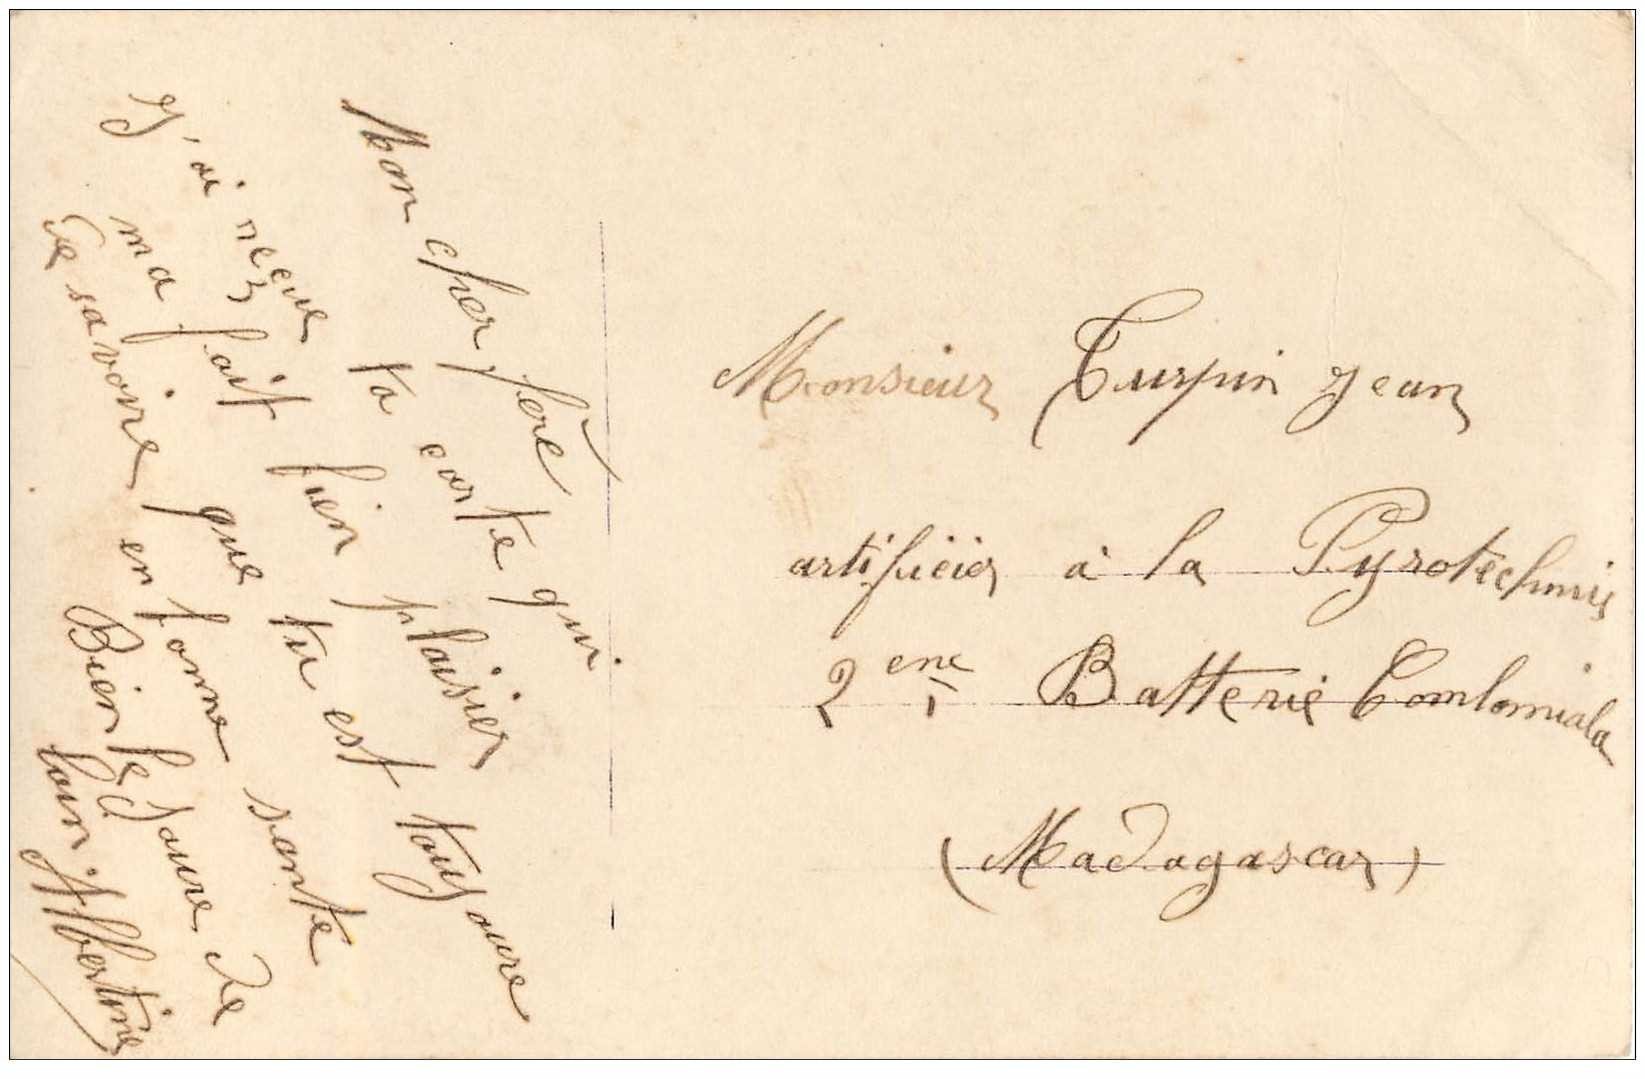 Mon cher fère
J'ai recue ta carte qui
ma fait bien plaisier
De savoire que tu est toujoure
en bonne sante
Bien le Joure de
loin Albertine
Monsieur Turpin Jean
artificier à la Pyrotechnie
2ene Batterie Comlomiala
(Madagascar)